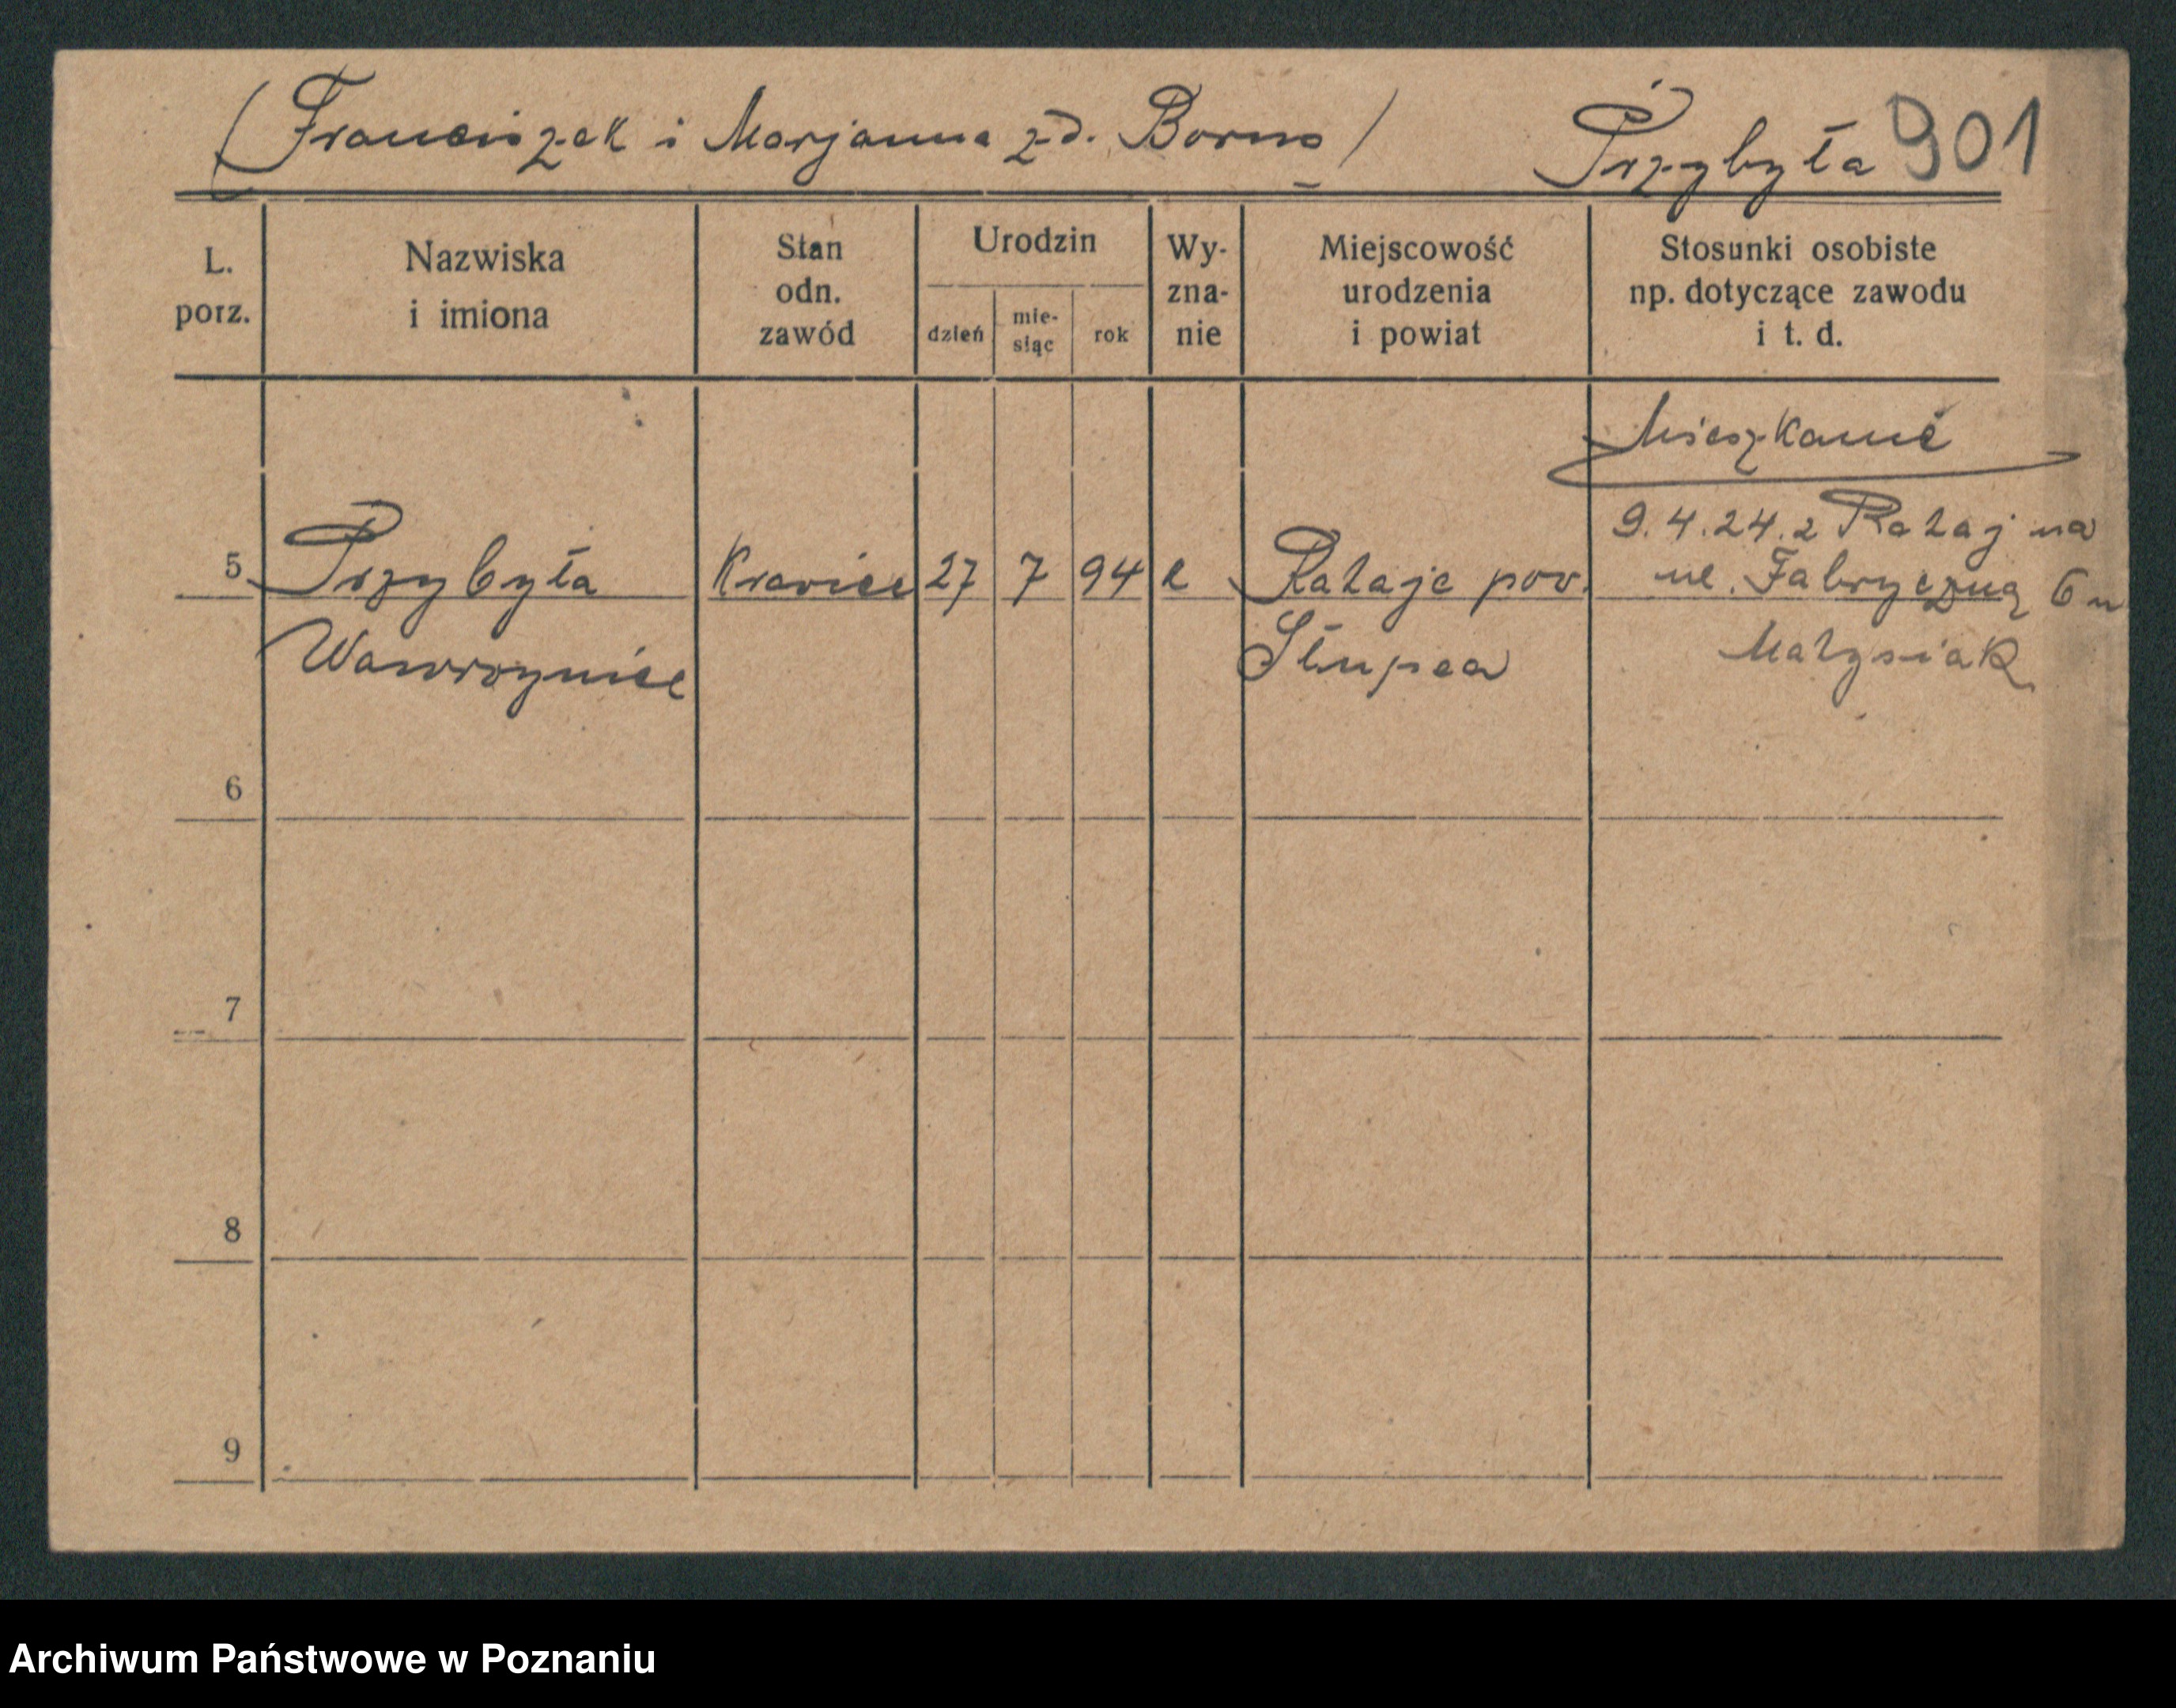 (Franciszek i Marjanna zd. Borna) Przybyła 901
L. porz.
Nazwiska i imiona
Stan odn. zawód
Urodzin
dzień
miesiąc
rok
Wyznanie
Miejscowość urodzenia i powiat
Stosunki osobiste np. dotyczące zawodu i t. d.
Mieszkanie
9.4.24. z Rataj na
5 Przybyła Krawiec 27 7 94 k Rataje pow. ul. Fabryczną 6 u
Wawrzyniec Słupca Matysiak
6
7
8
9
Archiwum Państwowe w Poznaniu